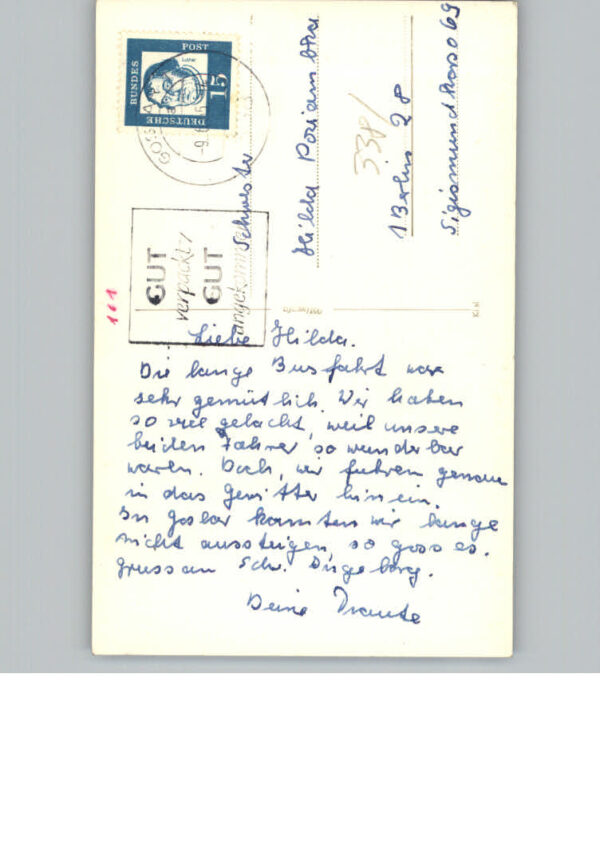 DEUTSCHE
BUNDES
POST
15
GOSLAR
-9.6.
GUT
verpackt
GUT
Schwester
Hilda
338/
1 Berlin 28
Sigismundkorso 69
101
Liebe Hilda.
Die lange Busfahrt war
sehr gemütlich. Wir haben
so viel gelacht, weil unsere
beiden Fahrer so wunderbar
waren. Doch, wir fuhren genau
in das Gewitter hinein.
In Goslar konnten wir lange
nicht aussteigen, so goss es.
Gruss an Schw. Ingeborg.
Deine Traute